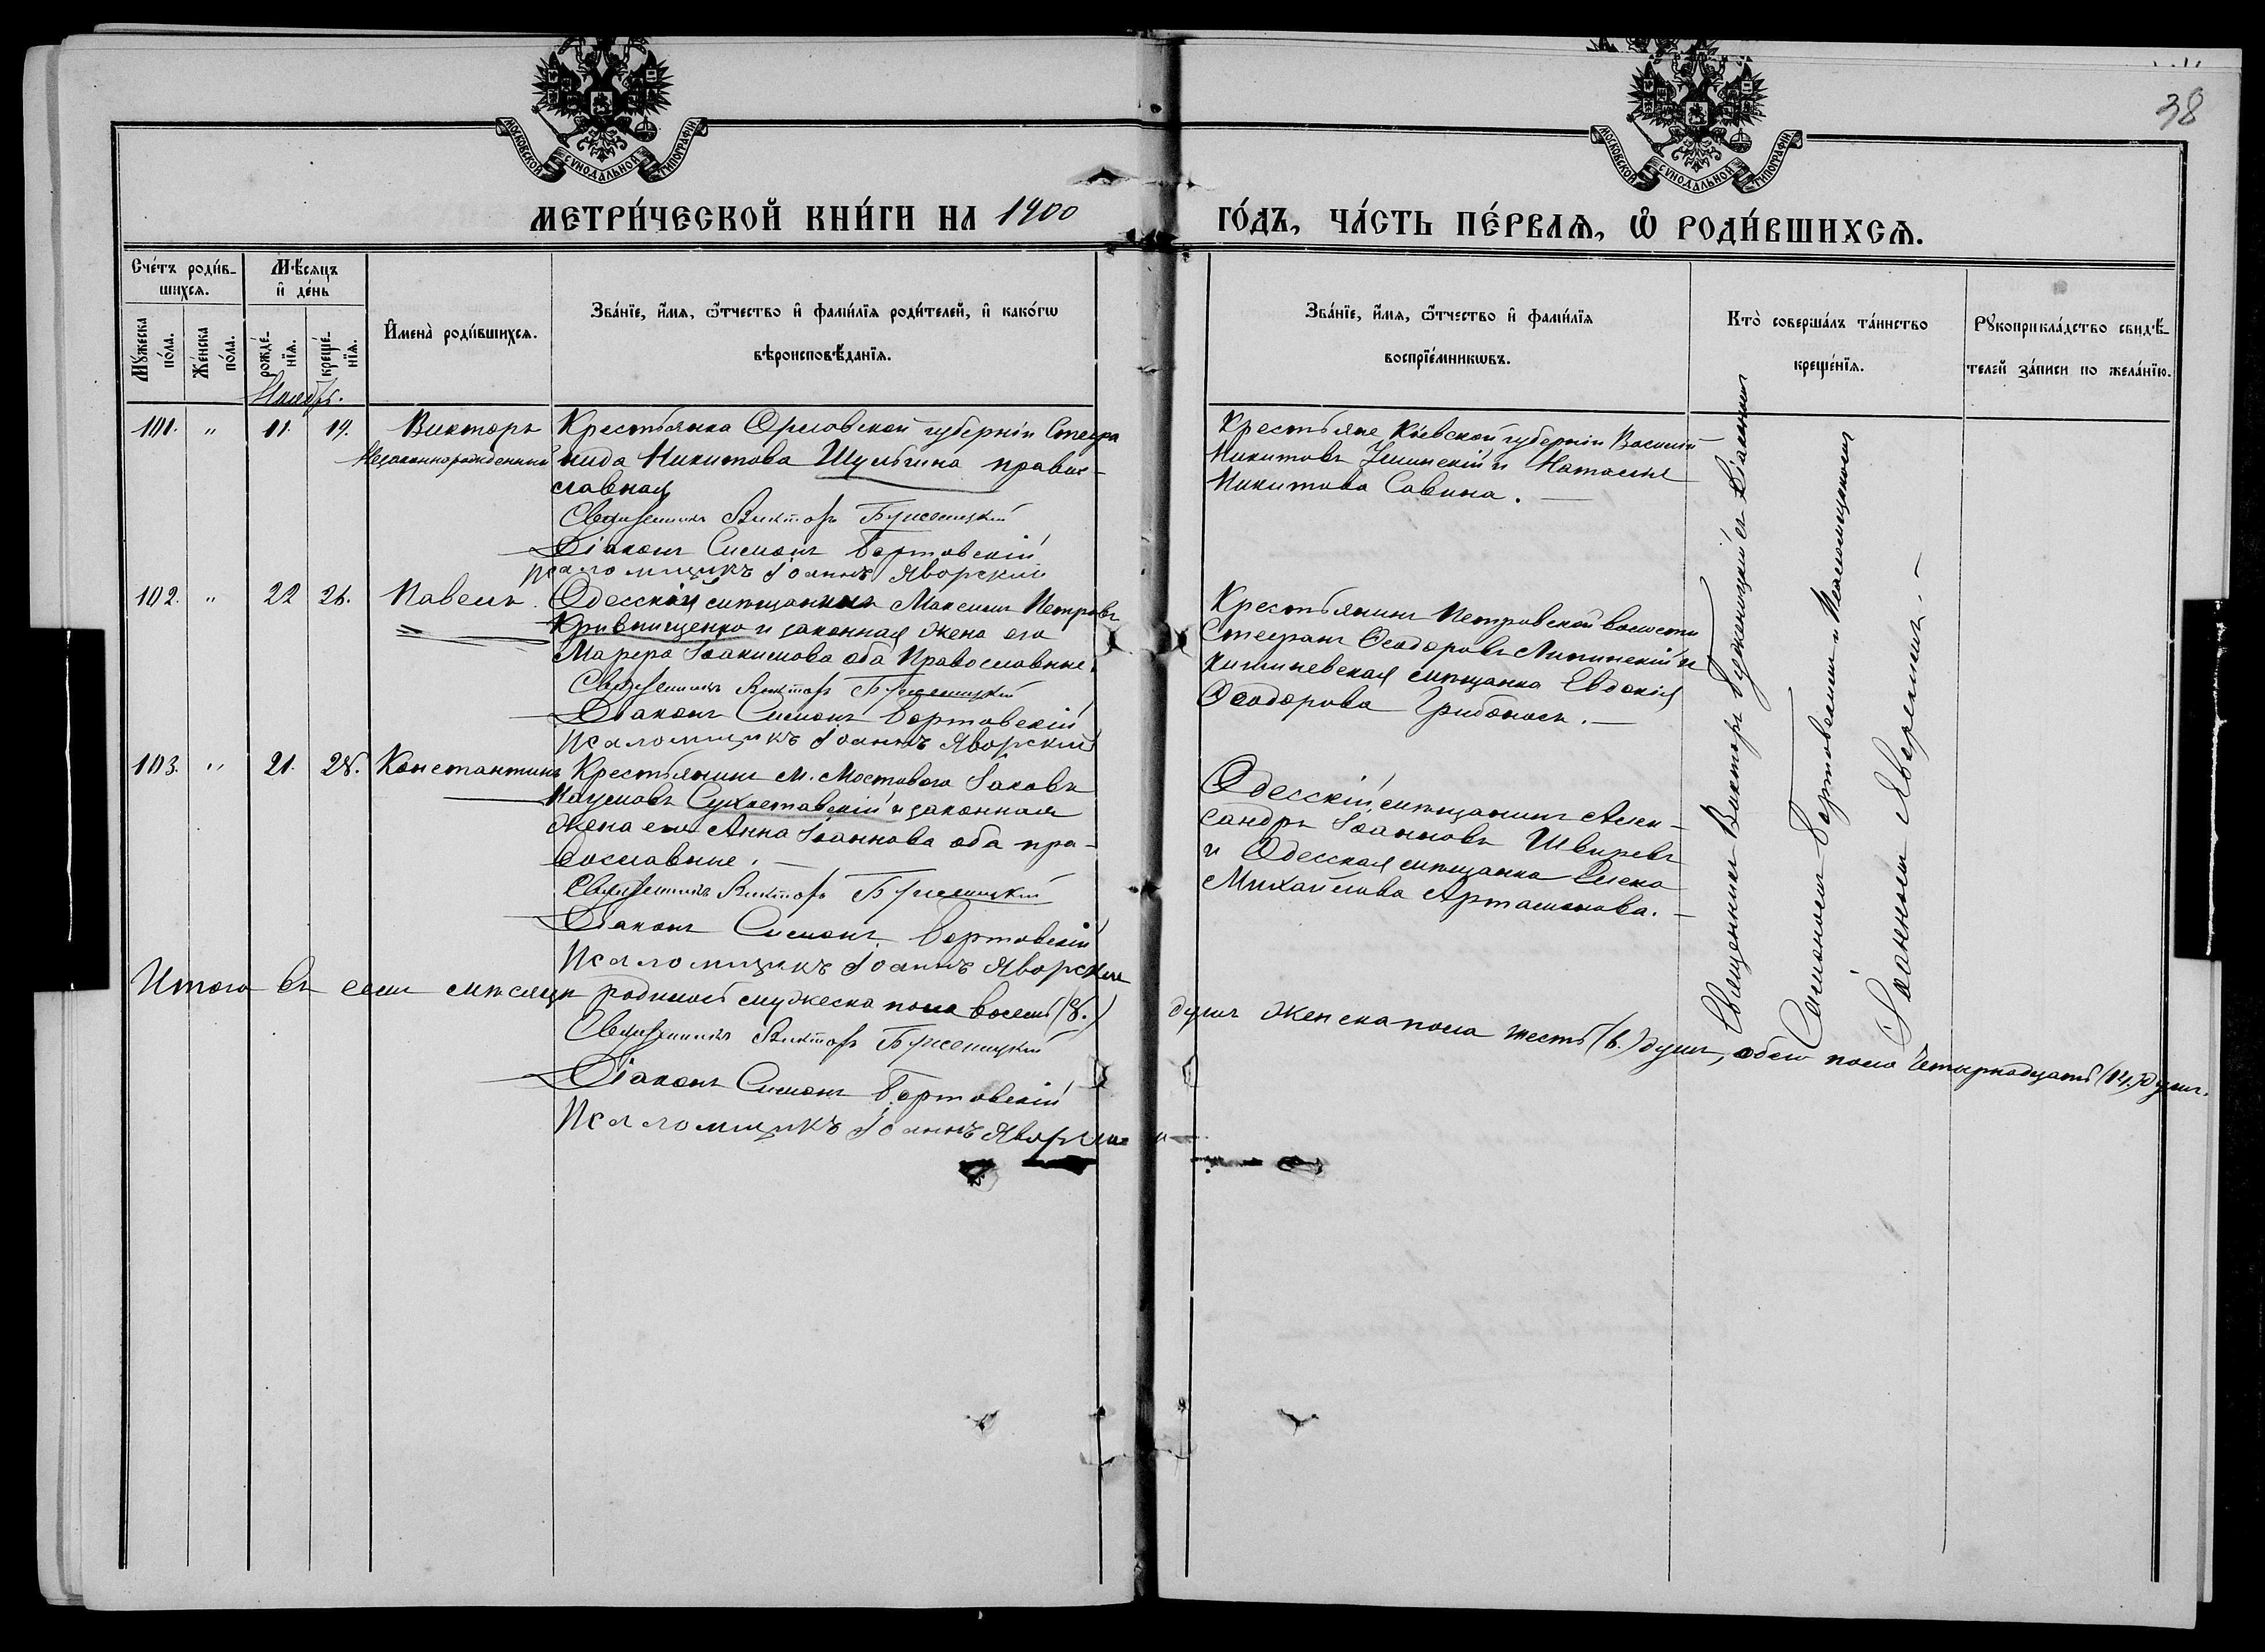 38
МОСКОВСКОЙ СѴНОДАЛЬНОЙ ТИПОГРАФІИ
МОСКОВСКОЙ СѴНОДАЛЬНОЙ ТИПОГРАФІИ
МЕТРИ́ЧЕСКОЙ КНИ́ГИ НА 1900
ГО́ДЪ, ЧА́СТЬ ПЕ́РВАѦ, Ѿ РОДИ́ВШИХСѦ.
Сче́тъ роди́в-
шихсѧ.
Мꙋжеска по́ла.
Же́нска по́ла.
Мѣ́сѧцъ
и҆ де́нь
рожде́-
нїѧ.
креще́-
нїѧ.
И҆мена̀ роди́вшихсѧ.
Зва́нїе, и҆́мѧ, ѻ҆́тчество и҆ фами́лїѧ роди́телей, и҆ како́гѡ
вѣроисповѣ́данїѧ.
Зва́нїе, и҆́мѧ, ѻ҆́тчество и҆ фами́лїѧ
воспрїе́мникѡвъ.
Кто̀ соверша́лъ та́инство
креще́нїѧ.
Рꙋкоприкла́дство свидѣ́-
телей за́писи по жела́нїю.
Ноябрь.
101. " 11. 19. Викторъ
Незаконнорожденный
Крестьянка Орловской губерніи Стефа
нида Никитова Шульгина право-
славная
Священникъ Викторъ Буженицкій
Діаконъ Симонъ Бортовскій
Псаломщикъ Іоаннъ Яворскій
Крестьяне Кіевской губерніи Василій
Никитовъ и Наталія
Никитова Савина. —
102. " 22 26. Павелъ.
Одесскій мѣщанинъ Максимъ Петровъ
Кривпищенко и законная жена его
Марфа Іоакимова оба Православные.
Священникъ Викторъ Буженицкій
Діаконъ Симонъ Бортовскій
Псаломщикъ Іоаннъ Яворскій
Крестьянинъ Петровской волости
Стефанъ Ѳеодоровъ Липинскій и
Кишиневская мѣщанка Евдокія
Ѳеодорова Грибоносъ. —
103. " 21. 28. Константинъ
Крестьянинъ м. Мостового Іаковъ
Наумовъ Сухоставскій и законная
жена его Анна Іоаннова оба пра-
вославные. —
Священникъ Викторъ Буженицкій
Діаконъ Симонъ Бортовскій
Псаломщикъ Іоаннъ Яворскій
Одесскій мѣщанинъ Алек-
сандръ Іоанновъ Швыревъ
и Одесская мѣщанка Елена
Михайлова Артамонова. —
Священникъ Викторъ Буженицкій съ Діакономъ
Симономъ Бортовскимъ и Псаломщикомъ
Іоанномъ Яворскимъ. —
Итого въ семъ мѣсяцѣ родилось мужеска пола восемь (8.) душъ женска пола шесть (6.) душъ, обего пола четырнадцать (14.) душъ.
Священникъ Викторъ Буженицкій
Діаконъ Симонъ Бортовскій
Псаломщикъ Іоаннъ Яворскій